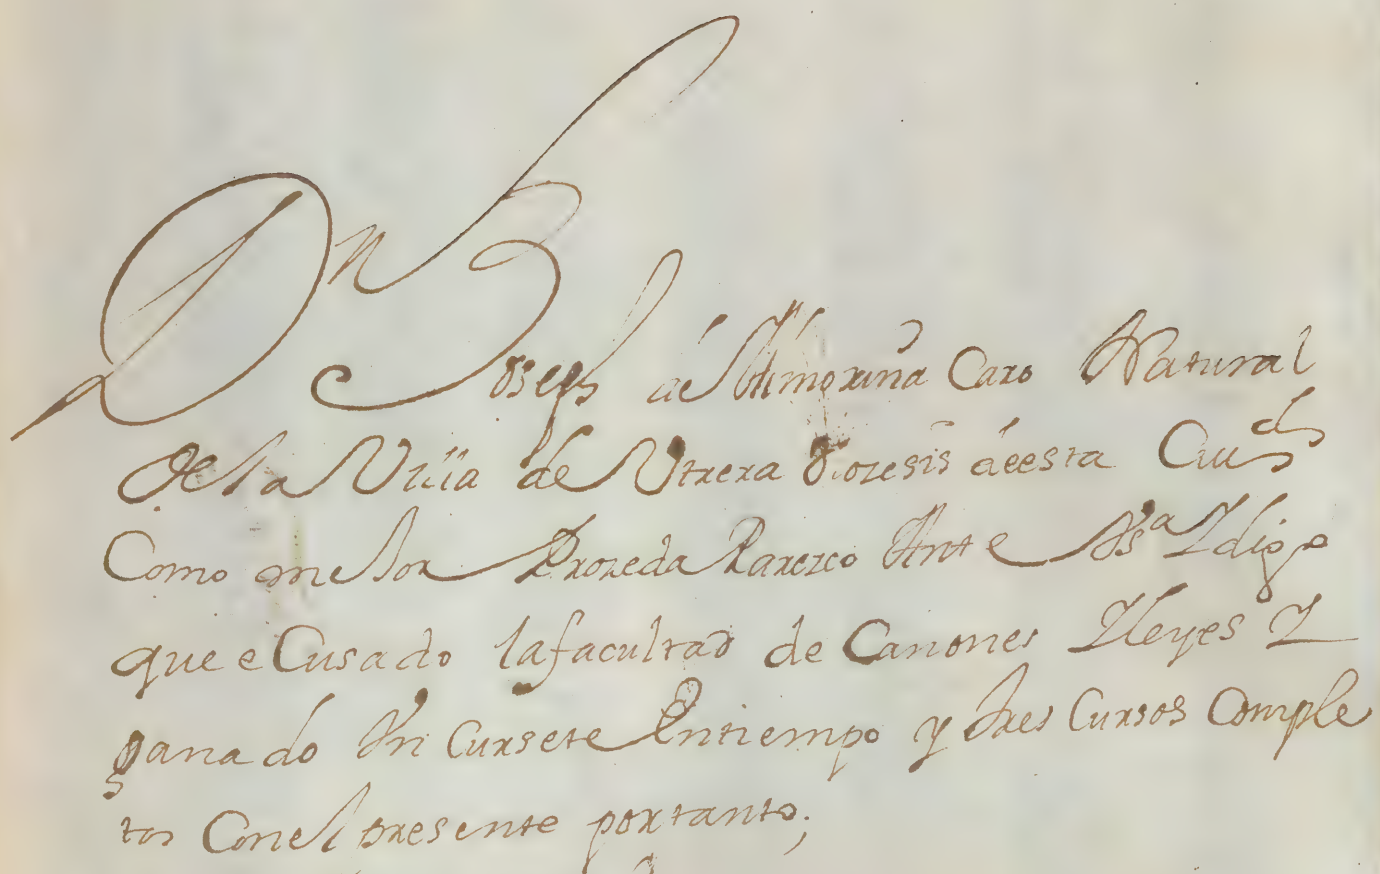 Dn Joseph de Almoruña Caro Natural
de la Villa de Utrera Diozesis deesta Ciud
Como mejor Prozeda Parezco Ante Vsa Y digo
que e Cusado lafacultad de Canones Y leyes Y
ganado Un Cursete Entiempo y tres Cursos Comple
tos Conel presente portanto;